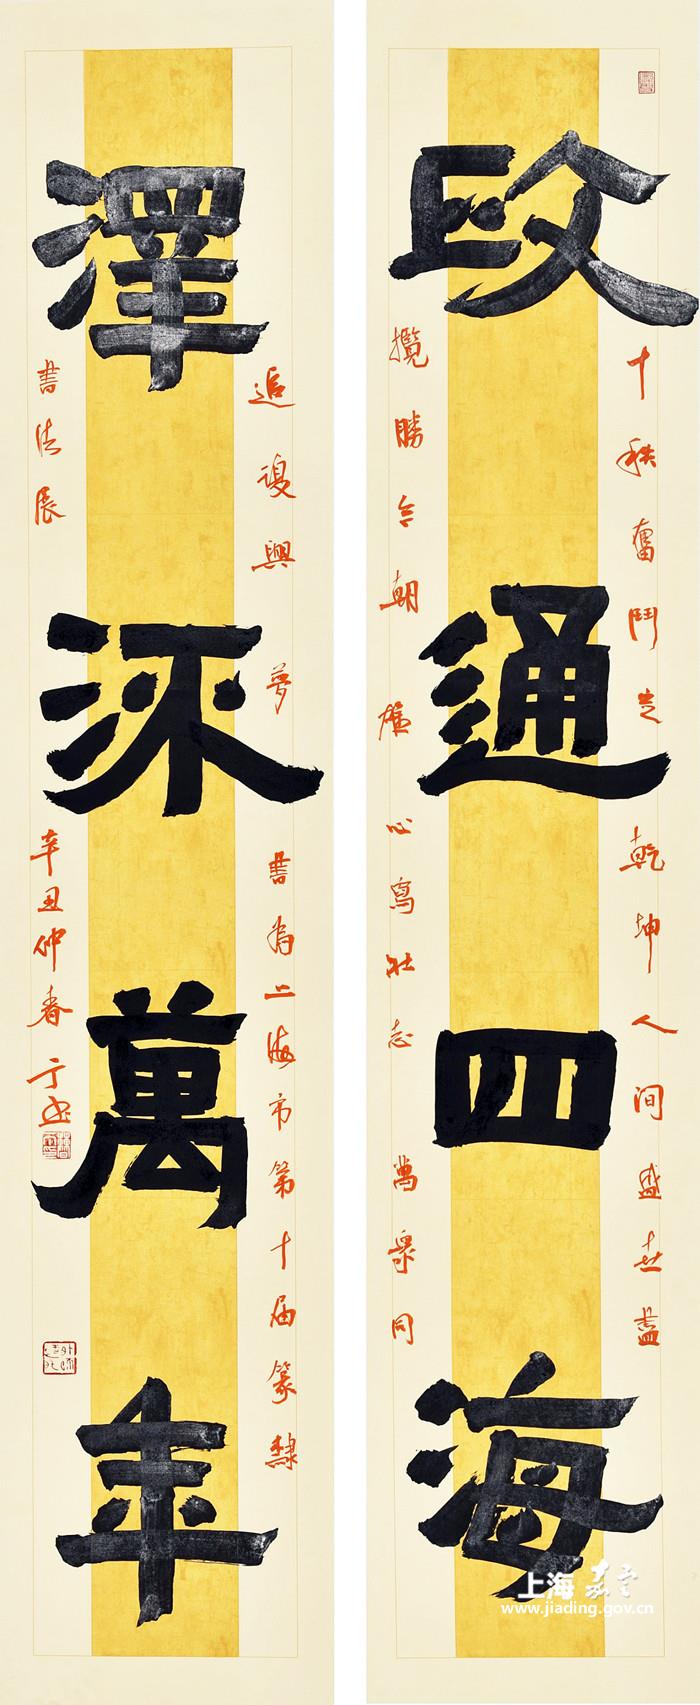 政通四海
十秩奮鬥定乾坤人間盛世盡
攬勝今朝雄心寫壯志萬衆同
澤流萬年
追復興夢 書為上海市第十届篆隸
書法展 辛丑仲春
上海嘉定
www.jiading.gov.cn